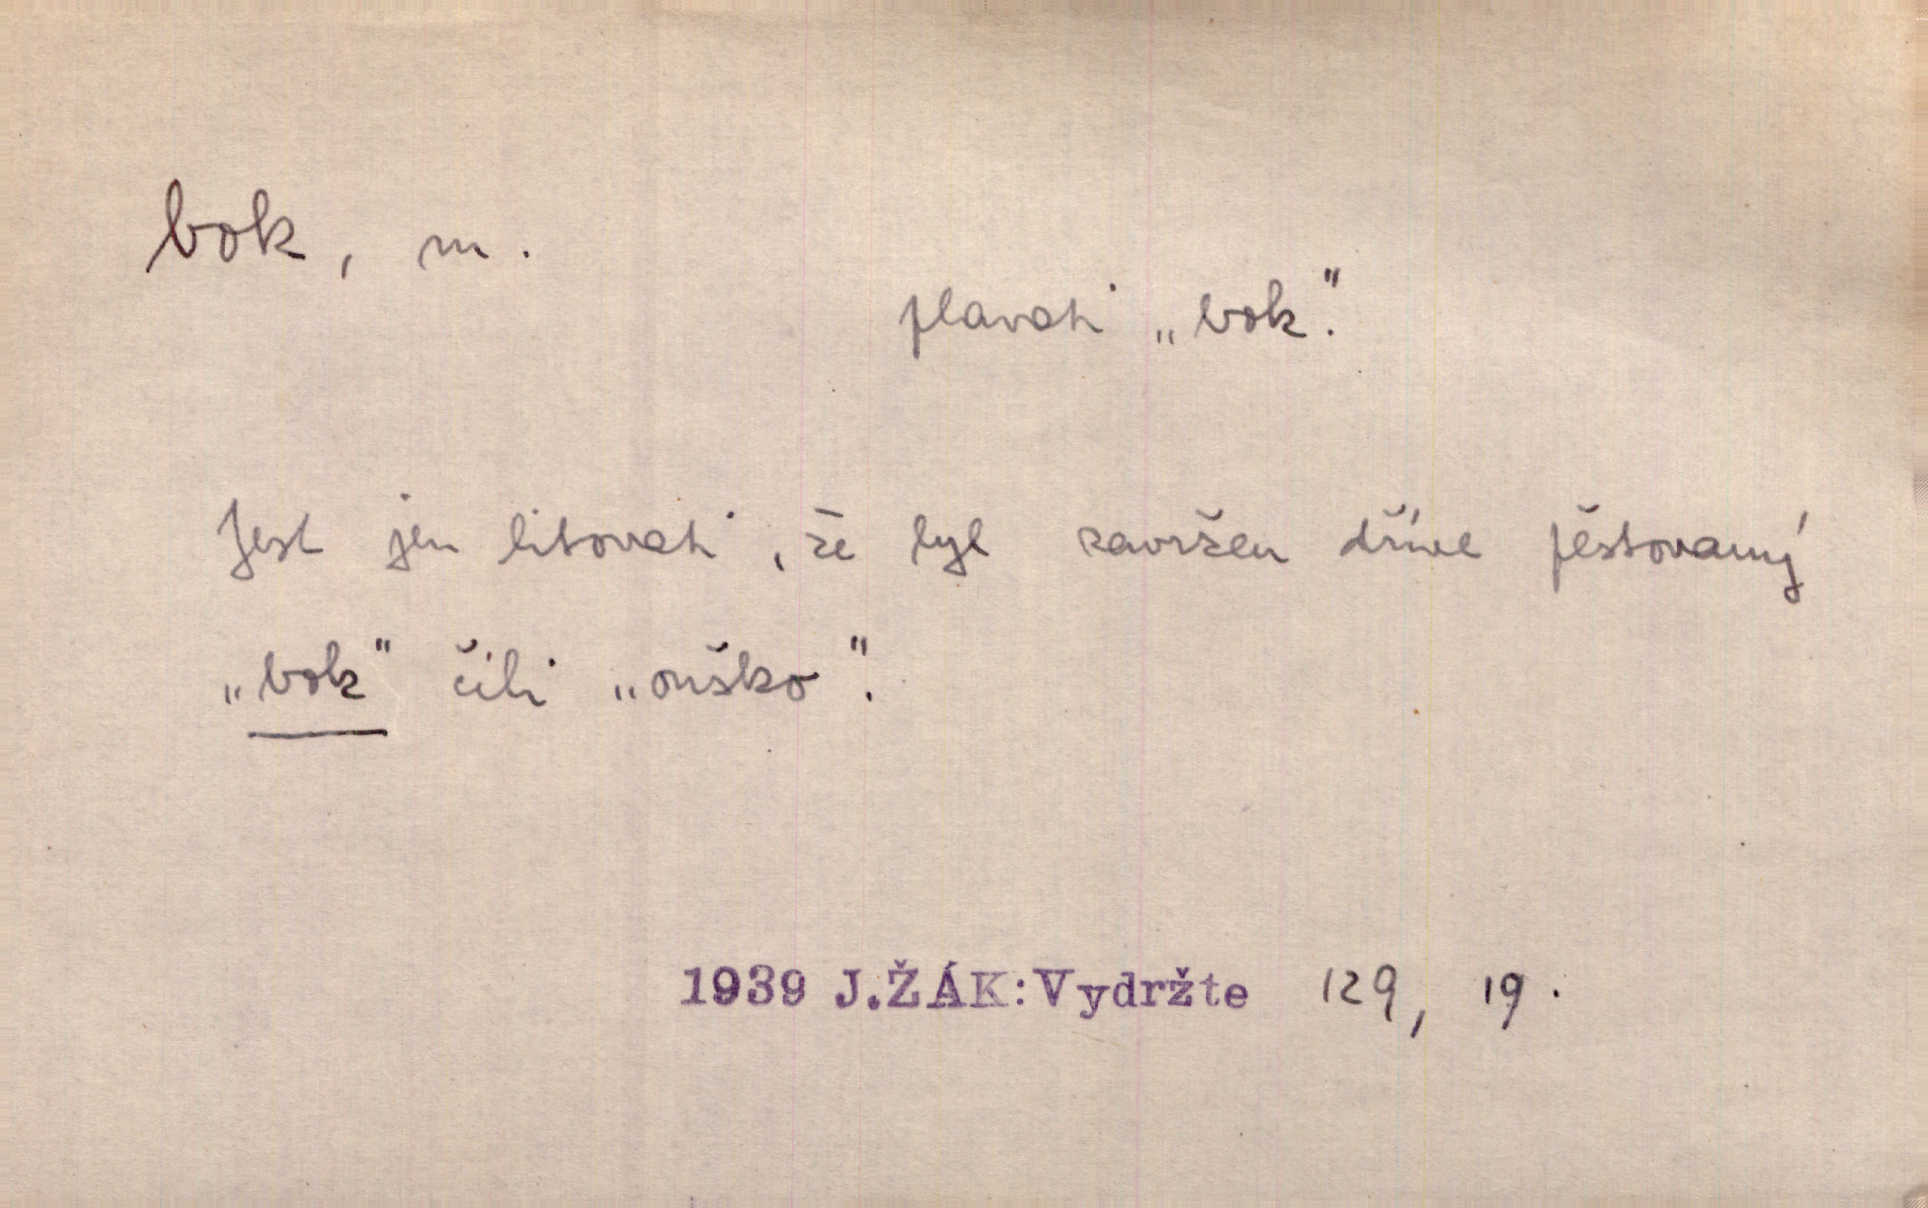 bok, m.
plavati „bok".
Jest jen litovati, že byl zavržen dříve pěstovaný
„bok" čili „ouško".
1939 J.ŽÁK:Vydržte 129, 19.